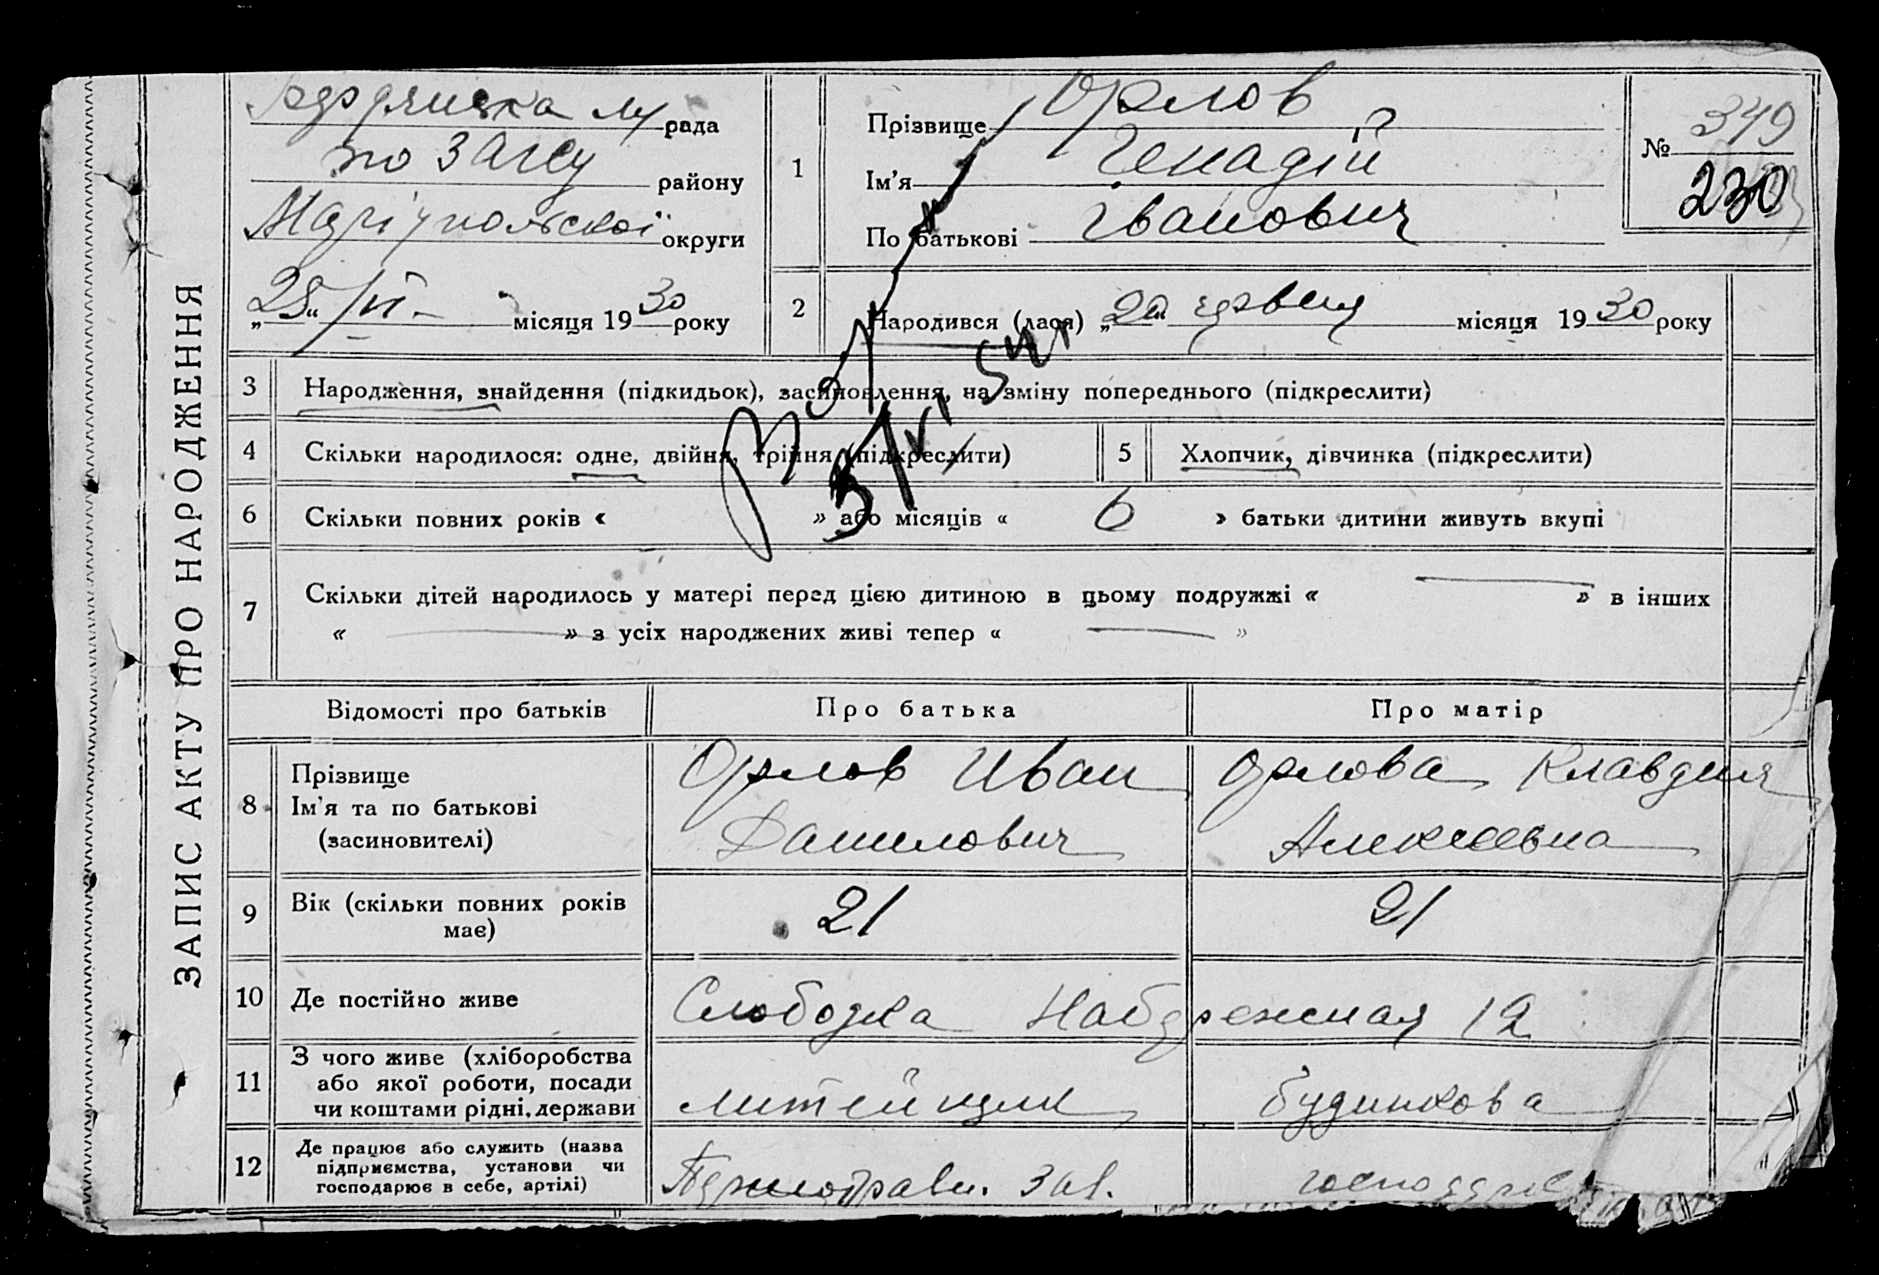 ЗАПИС АКТУ ПРО НАРОДЖЕННЯ
рада
по Загсу району
Маріупольскої округи
„25“ VI - місяця 1930 року
1
Прізвище Орлов
Ім'я Генадій
По батькові Іванович
№ 349
230
2
Народився (лася) „20“ червня місяця 1930 року
3 Народження, знайдення (підкидьок), засиновлення, на зміну попереднього (підкреслити)
4 Скільки народилося: одне, двійня, трійня (підкреслити)
5 Хлопчик, дівчинка (підкреслити)
6 Скільки повних років « » або місяців « 6 » батьки дитини живуть вкупі
7 Скільки дітей народилось у матері перед цією дитиною в цьому подружжі « — » в інших
« — » з усіх народжених живі тепер « — »
Відомості про батьків Про батька Про матір
8 Прізвище
Ім'я та по батькові
(засиновителі)
Орлов Иван
Данилович
Орлова Клавдия
Алексеевна
9 Вік (скільки повних років
має)
21 21
10 Де постійно живе Слободка Набережная 12
11 З чого живе (хліборобства
або якої роботи, посади
чи коштами рідні, держави
литейщик будинкова
12 Де працює або служить (назва
підприємства, установи чи
господарює в себе, артілі)
зав.